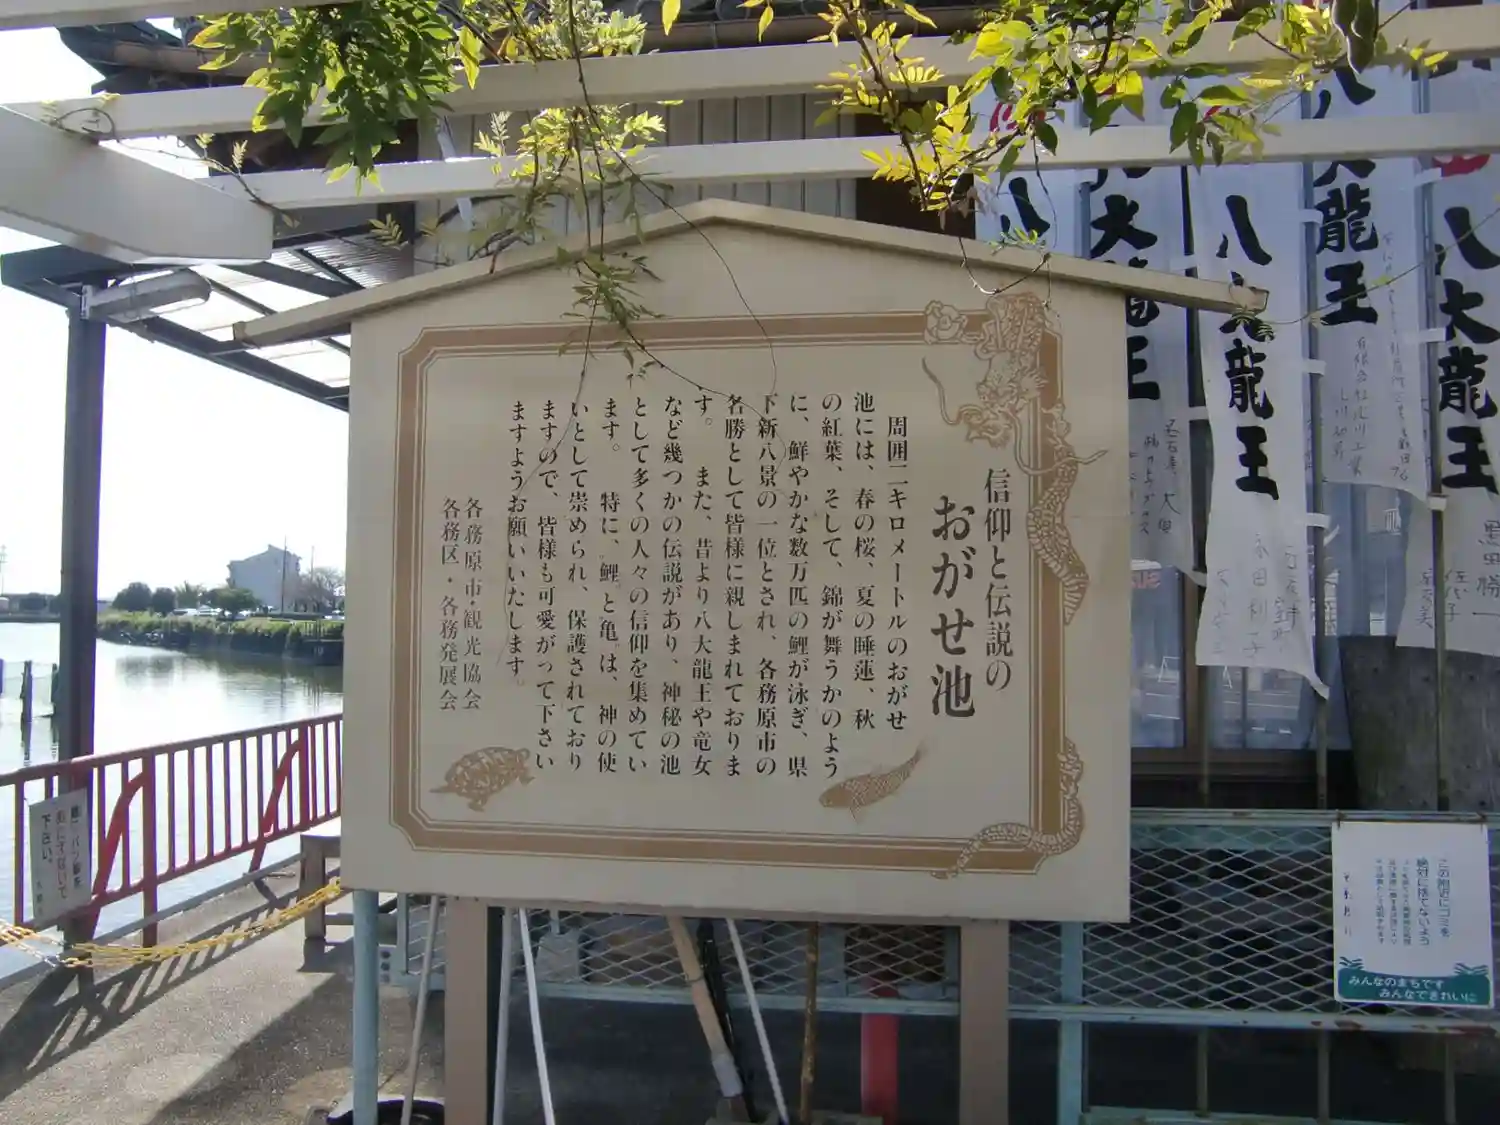 信仰と伝説の
おがせ池
周囲二キロメートルのおがせ
池には、春の桜、夏の睡蓮、秋
の紅葉、そして、錦が舞うかのよう
に、鮮やかな数万匹の鯉が泳ぎ、県
下新八景の一位とされ、各務原市の
名勝として皆様に親しまれておりま
す。　また、昔より八大龍王や竜女
など幾つかの伝説があり、神秘の池
として多くの人々の信仰を集めてい
ます。　特に、鯉と亀は、神の使
いとして崇められ、保護されており
ますので、皆様も可愛がって下さい
ますようお願いいたします。
各務原市・観光協会
各務区・各務発展会
八大龍王
八大龍王
八大龍王
八大龍王
この附近にゴミを
絶対に捨てないよう
みんなのまちです
みんなできれいに